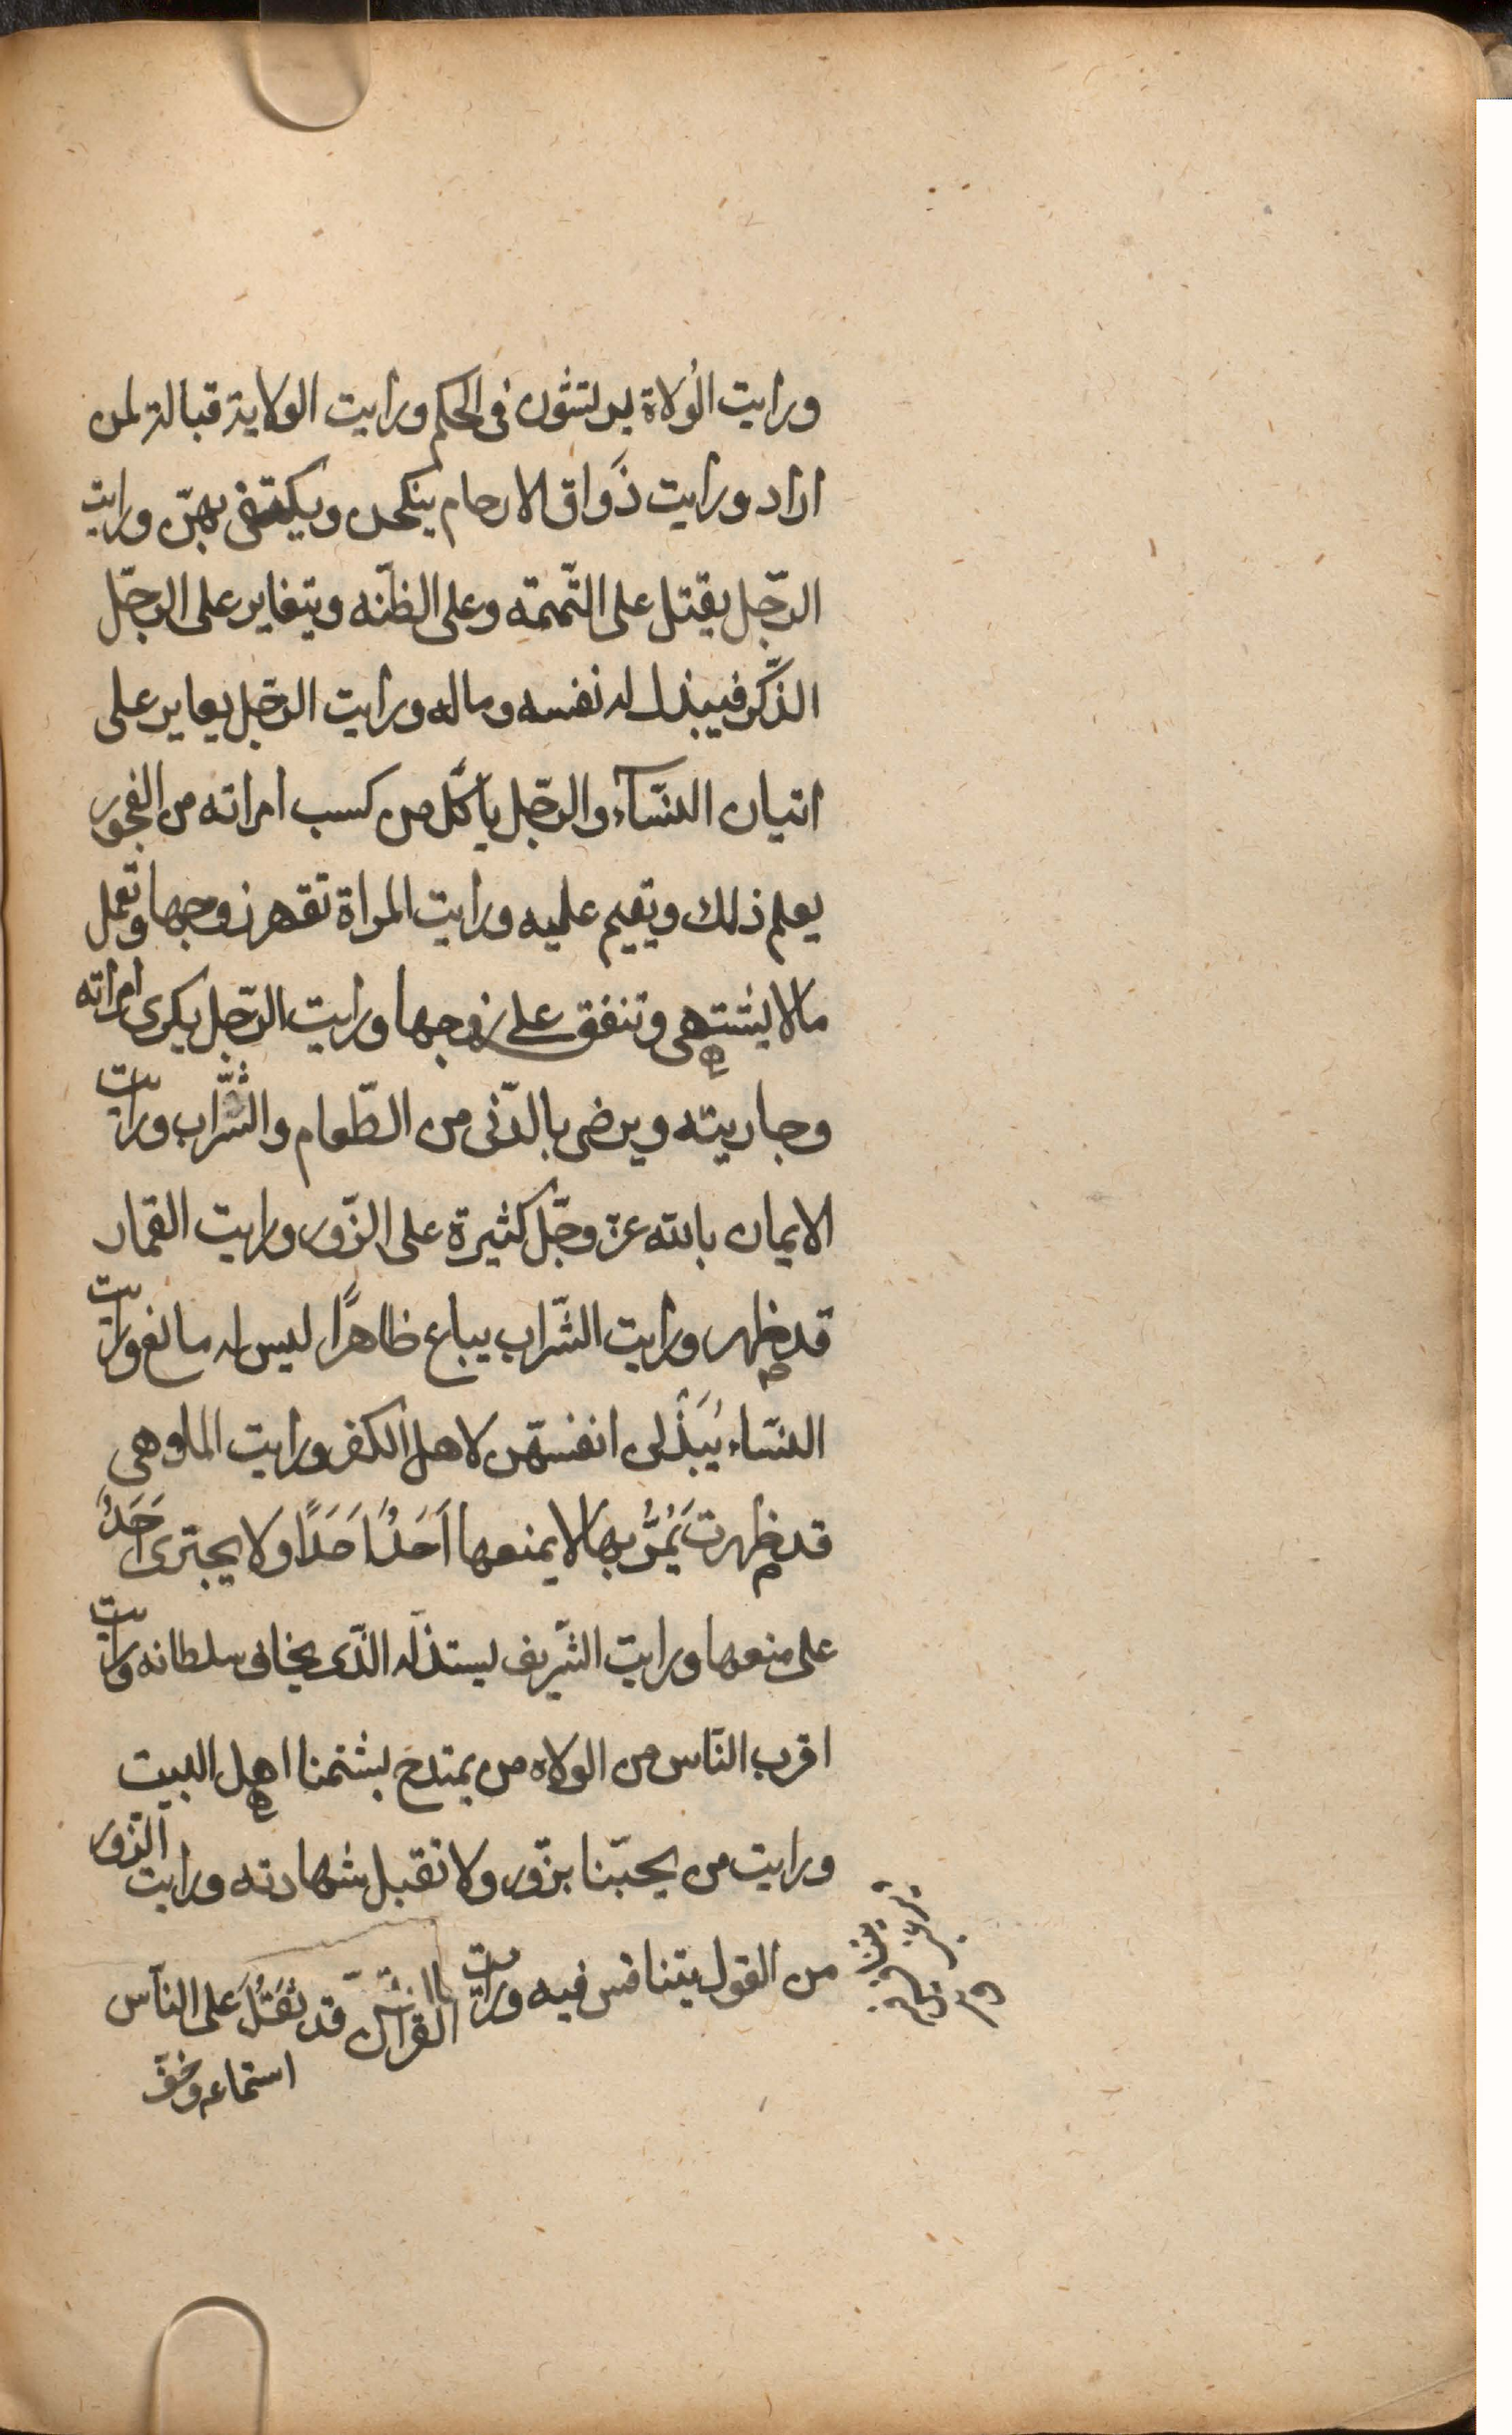 ورايت الُولاة يرتشون فى الحكم ورايت الولاية قبالة لمن
اراد ورايت ذَواق الارحام ينكحن ويكتفى بهنّ ورايت
الرّجل يقتل على التّهمة وعلى الظنّه ويتغاير على الرجّل
الذّكر فيبذل له نفسه وماله ورايت الرجّل يعاير على
اتيان النسّآء والرجّل ياكّل من كسب امراته من الفجور
يعلم ذلك ويقيم عليه ورايت المراة تقهر زوجها وتعمل
ما لا يشتهى وتنفق على زوجها ورايت الرّجل يكرى امراته
وجاريته ويرضى بالدّنى من الطّعام والشّراب ورايت
الايمان بالله عزّ وجّل كثيرة على الزّور ورايت القمار
قد ظهر ورايت الشّراب يباع ظاهرًا ليس له مانع ورايت
النسّاء يُبَذْلن انفسهّن لاهل الكفر ورايت الملاوهى
قد ظهرت يَمُرُّ بها لا يمنعها اَحَدٌ اَحَدًا ولا يجترى اَحَدٌ
على منعها ورايت الشّريف يستذلّه الذّى يخاف سلطانه ورايت
اقرب النّاس من الولاه من يمتدح بشتمنا اهل البيت
ورايت من يحبّنا يزّور ولا تقبل شهادته ورايت الزّور
من القول يتنافس فيه ورايت القران قد ثقل على النّاس
استماعه وخفّ